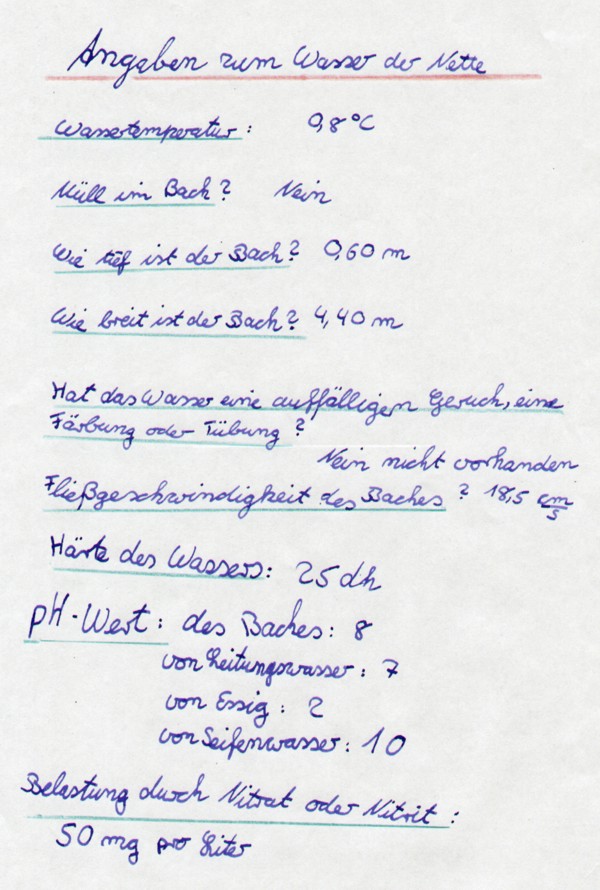 Angaben zum Wasser der Nette
Wassertemperatur: 0,8°C
Müll im Bach? Nein
Wie tief ist der Bach? 0,60 m
Wie breit ist der Bach? 4,40 m
Hat das Wasser eine auffälligen Geruch, eine
Färbung oder Tübung?
Nein nicht vorhanden
Fließgeschwindigkeit des Baches? 18,5 cm/s
Härte des Wassers: 25 dh
pH-Wert: des Baches: 8
von Leitungswasser: 7
von Essig: 2
von Seifenwasser: 10
Belastung durch Nitrat oder Nitrit:
50 mg pro Liter